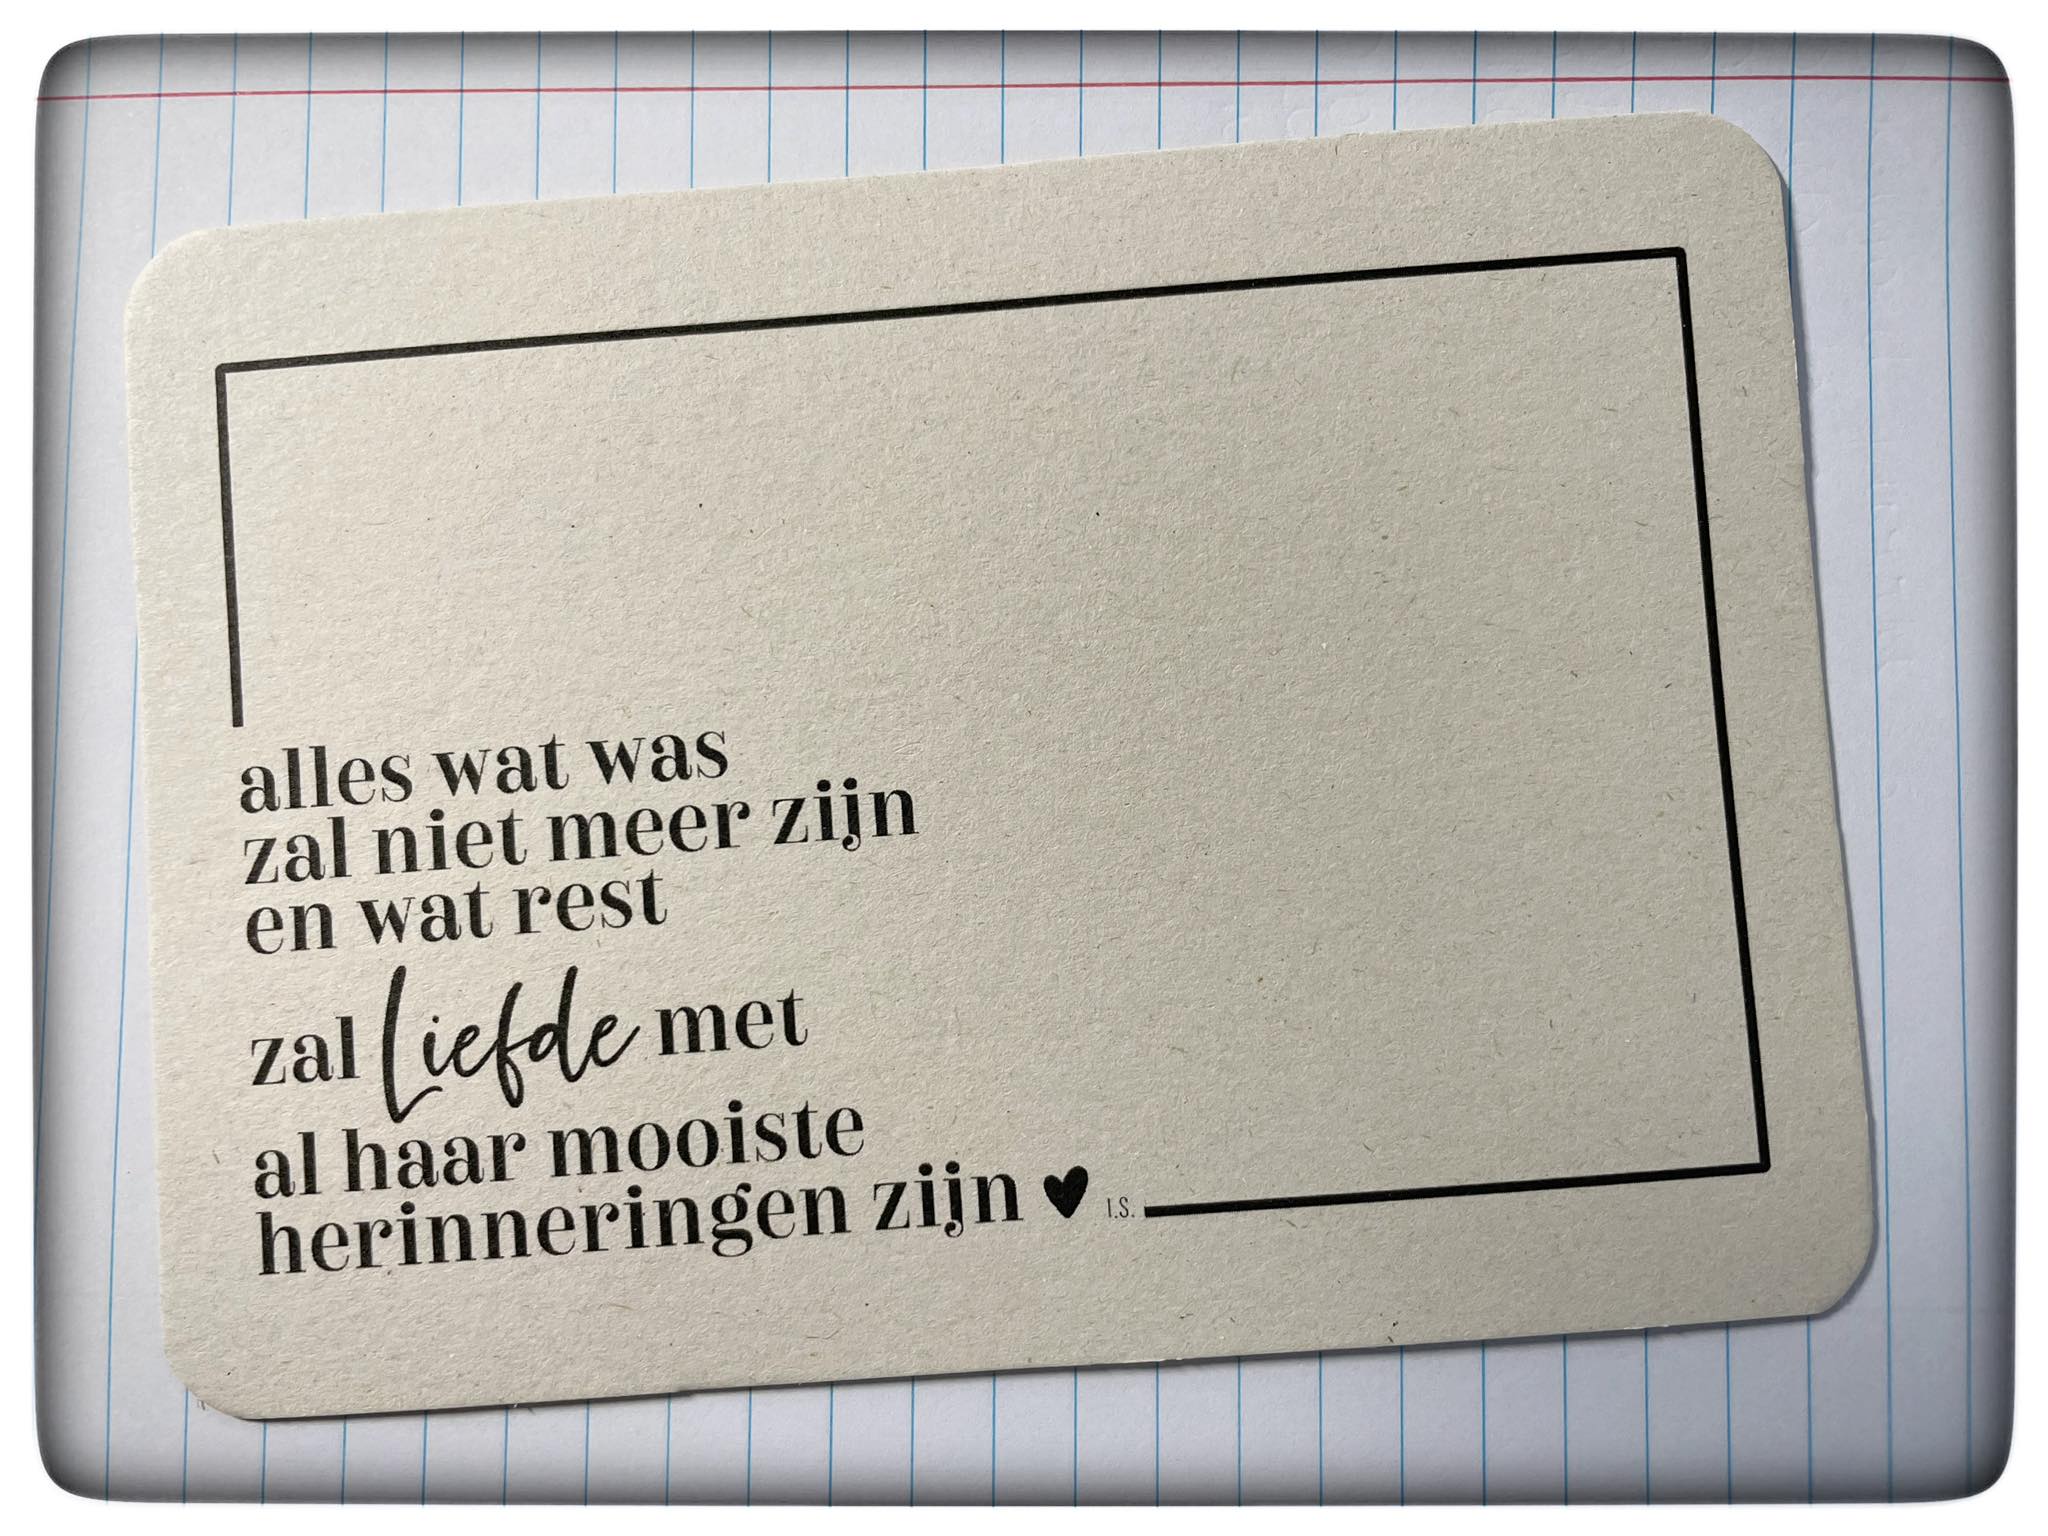 alles wat was
zal niet meer zijn
en wat rest
zal Liefde met
al haar mooiste
herinneringen zijn ♥ I.S.